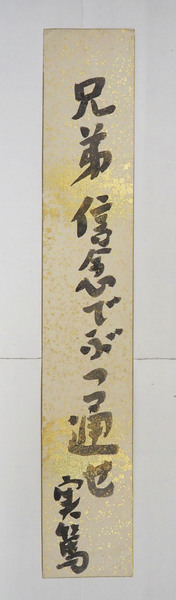 兄弟 信念でぶつ通せ
実篤